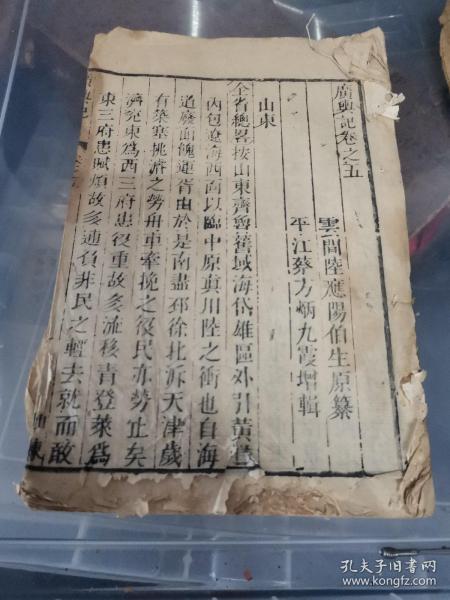 廣輿記卷之五
雲間陸應陽伯生原纂
平江蔡方炳九霞增輯
山東
全省總畧按山東齊魯舊域海岱雄區外引黃
內包遼海西面以臨中原眞川陸之衝也自海
道廢而餽運胥由於是南盡邳徐北泝天津歲
有築塞挑濬之勞舟車牽挽之役民亦勢止矣
濟兗東爲西三府患役重故多流移青登萊爲
東三府患賦煩故多逋負非民之輕去就而敢
孔夫子旧书网
www.kongfz.com